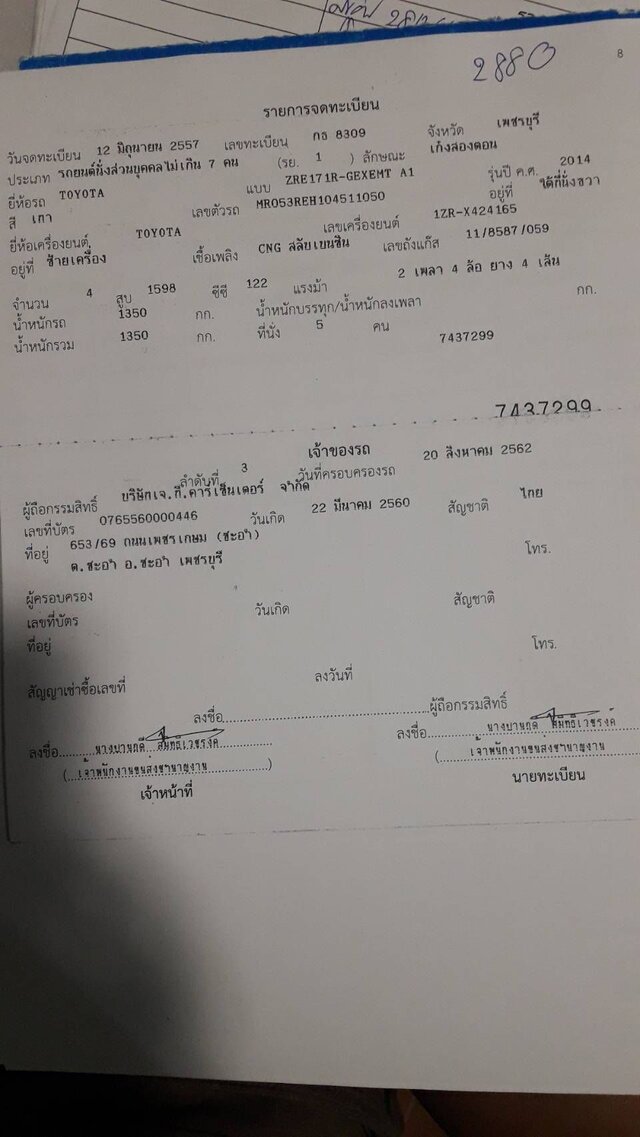 2880
8
รายการจดทะเบียน
วันจดทะเบียน 12 มิถุนายน 2557 เลขทะเบียน กธ 8309 จังหวัด เพชรบุรี
ประเภท รถยนต์นั่งส่วนบุคคลไม่เกิน 7 คน (รย. 1 ) ลักษณะ เก๋งสองตอน
ยี่ห้อรถ TOYOTA แบบ ZRE171R-GEXEMT A1 รุ่นปี ค.ศ. 2014
สี เทา เลขตัวรถ MR053REH104511050 อยู่ที่ ใต้ที่นั่งขวา
ยี่ห้อเครื่องยนต์ TOYOTA เลขเครื่องยนต์ 1ZR-X424165
อยู่ที่ ซ้ายเครื่อง เชื้อเพลิง CNG สลับเบนซิน เลขถังแก๊ส 11/8587/059
จำนวน 4 สูบ 1598 ซีซี 122 แรงม้า 2 เพลา 4 ล้อ ยาง 4 เส้น
น้ำหนักรถ 1350 กก. น้ำหนักบรรทุก/น้ำหนักลงเพลา กก.
น้ำหนักรวม 1350 กก. ที่นั่ง 5 คน 7437299
7437299
เจ้าของรถ
ลำดับที่ 3 วันที่ครอบครองรถ 20 สิงหาคม 2562
ผู้ถือกรรมสิทธิ์ บริษัทเจ.ที.คาร์เซ็นเตอร์ จำกัด
เลขที่บัตร 0765560000446 วันเกิด 22 มีนาคม 2560 สัญชาติ ไทย
ที่อยู่ 653/69 ถนนเพชรเกษม (ชะอำ)
ต.ชะอำ อ.ชะอำ เพชรบุรี โทร.
ผู้ครอบครอง
เลขที่บัตร วันเกิด สัญชาติ
ที่อยู่ โทร.
สัญญาเช่าซื้อเลขที่ ลงวันที่
ลงชื่อ ผู้ถือกรรมสิทธิ์
ลงชื่อ ลงชื่อ
(เจ้าพนักงานขนส่งชำนาญงาน) (เจ้าพนักงานขนส่งชำนาญงาน
เจ้าหน้าที่ นายทะเบียน